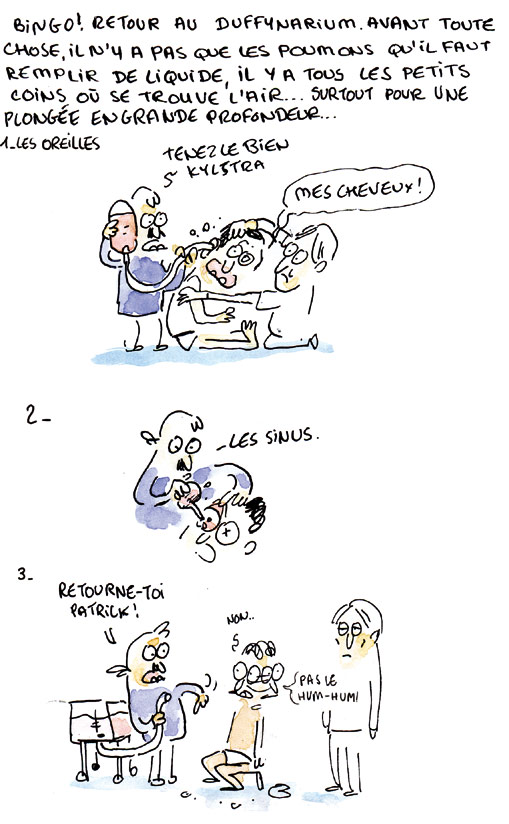 BINGO! RETOUR AU DUFFYNARIUM. AVANT TOUTE
CHOSE, IL N'Y A PAS QUE LES POUMONS QU'IL FAUT
REMPLIR DE LIQUIDE, IL Y A TOUS LES PETITS
COINS OÙ SE TROUVE L'AIR... SURTOUT POUR UNE
PLONGÉE EN GRANDE PROFONDEUR...
1_LES OREILLES
TENEZ LE BIEN
KYLSTRA
MES CHEVEUX!
2_
LES SINUS.
3_
RETOURNE-TOI
PATRICK!
NON..
PAS LE
HUM-HUM!